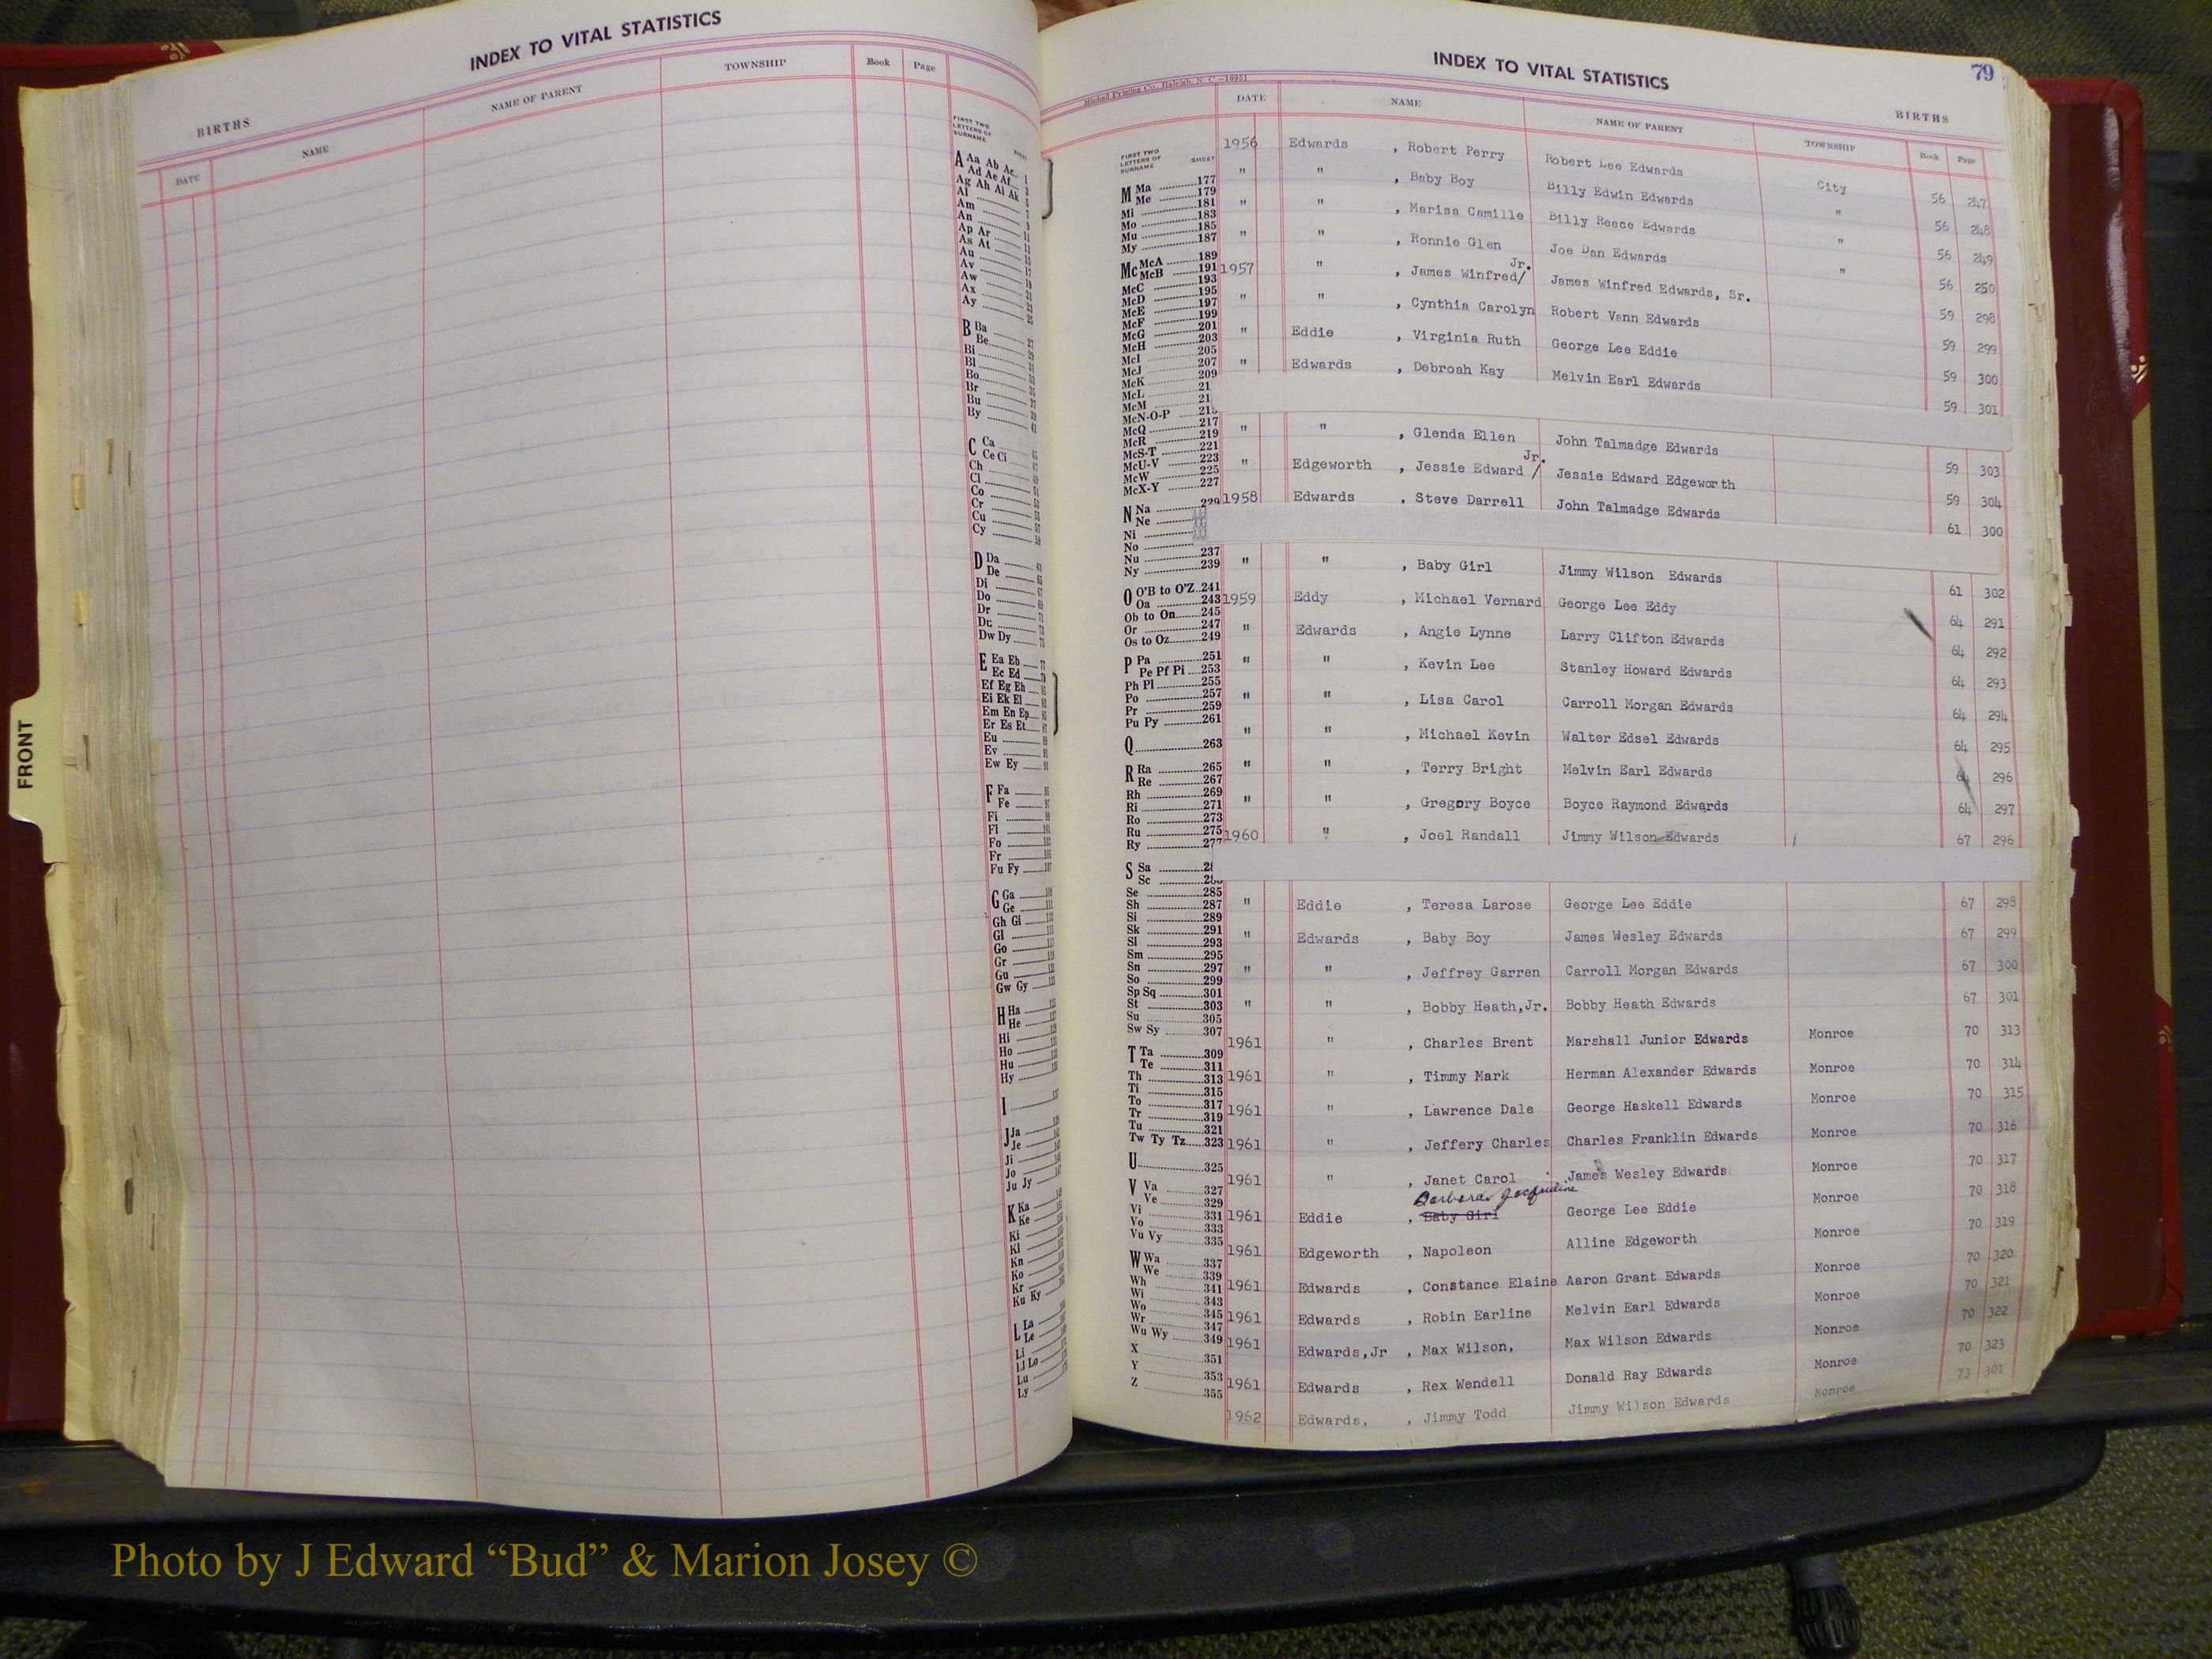 INDEX TO VITAL STATISTICS
BIRTHS
DATE NAME NAME OF PARENT TOWNSHIP Book Page
FIRST TWO
LETTERS OF
SURNAME
A Aa Ab Ac
Ad Ae Af
Ag Ah Ai Ak
Al
Am
An
Ap Ar
As At
Au
Av
Aw
Ax
Ay
B Ba
Be
Bi
Bl
Bo
Br
Bu
By
C Ca
Ce Ci
Ch
Cl
Co
Cr
Cu
Cy
D Da
De
Di
Do
Dr
Du
Dw Dy
E Ea Eb
Ec Ed
Ef Eg Eh
Ei Ek El
Em En Ep
Er Es Et
Eu
Ev
Ew Ey
F Fa
Fe
Fi
Fl
Fo
Fr
Fu Fy
G Ga
Ge
Gh Gi
Gl
Go
Gr
Gu
Gw Gy
H Ha
He
Hi
Ho
Hu
Hy
I
J Ja
Je
Ji
Jo
Ju Jy
K Ka
Ke
Ki
Kl
Kn
Ko
Kr
Ku Ky
L La
Le
Li
Ll Lo
Lu
Ly
FRONT
INDEX TO VITAL STATISTICS
79
Mitchell Printing Co., Raleigh, N. C.—16951
BIRTHS
DATE NAME NAME OF PARENT TOWNSHIP Book Page
FIRST TWO
LETTERS OF
SURNAME SHEET
M Ma 177
Me 179
Mi 181
Mo 183
Mu 185
My 187
Mc McA 189
McB 191
McC 193
McD 195
McE 197
McF 199
McG 201
McH 203
McI 205
McJ 207
McK 209
McL 21
McM 21
McN-O-P 215
McQ 217
McR 219
McS-T 221
McU-V 223
McW 225
McX-Y 227
N Na 229
Ne
Ni
No
Nu 237
Ny 239
O O'B to O'Z 241
Oa 243
Ob to On 245
Or 247
Os to Oz 249
P Pa 251
Pe Pf Pi 253
Ph Pl 255
Po 257
Pr 259
Pu Py 261
Q 263
R Ra 265
Re 267
Rh 269
Ri 271
Ro 273
Ru 275
Ry 277
S Sa
Sc
Se 285
Sh 287
Si 289
Sk 291
Sl 293
Sm 295
Sn 297
So 299
Sp Sq 301
St 303
Su 305
Sw Sy 307
T Ta 309
Te 311
Th 313
Ti 315
To 317
Tr 319
Tu 321
Tw Ty Tz 323
U 325
V Va 327
Ve 329
Vi 331
Vo 333
Vu Vy 335
W Wa 337
We 339
Wh 341
Wi 343
Wo 345
Wr 347
Wu Wy 349
X 351
Y 353
Z 355
1956 Edwards , Robert Perry Robert Lee Edwards City 56 247
" " , Baby Boy Billy Edwin Edwards " 56 248
" " , Marisa Camille Billy Reece Edwards " 56 249
" " , Ronnie Glen Joe Dan Edwards " 56 250
1957 " , James Winfred/ Jr. James Winfred Edwards, Sr. 59 298
" " , Cynthia Carolyn Robert Vann Edwards 59 299
" Eddie , Virginia Ruth George Lee Eddie 59 300
" Edwards , Debroah Kay Melvin Earl Edwards 59 301
" " , Glenda Ellen John Talmadge Edwards 59 303
" Edgeworth , Jessie Edward / Jr. Jessie Edward Edgeworth 59 304
1958 Edwards , Steve Darrell John Talmadge Edwards 61 300
" " , Baby Girl Jimmy Wilson Edwards 61 302
1959 Eddy , Michael Vernard George Lee Eddy 64 291
" Edwards , Angie Lynne Larry Clifton Edwards 64 292
" " , Kevin Lee Stanley Howard Edwards 64 293
" " , Lisa Carol Carroll Morgan Edwards 64 294
" " , Michael Kevin Walter Edsel Edwards 64 295
" " , Terry Bright Melvin Earl Edwards 64 296
" " , Gregory Boyce Boyce Raymond Edwards 64 297
1960 " , Joel Randall Jimmy Wilson Edwards 67 296
" Eddie , Teresa Larose George Lee Eddie 67 298
" Edwards , Baby Boy James Wesley Edwards 67 299
" " , Jeffrey Garren Carroll Morgan Edwards 67 300
" " , Bobby Heath,Jr. Bobby Heath Edwards 67 301
1961 " , Charles Brent Marshall Junior Edwards Monroe 70 313
1961 " , Timmy Mark Herman Alexander Edwards Monroe 70 314
1961 " , Lawrence Dale George Haskell Edwards Monroe 70 315
1961 " , Jeffery Charles Charles Franklin Edwards Monroe 70 316
1961 " , Janet Carol James Wesley Edwards Monroe 70 317
Barbara Jacqueline
1961 Eddie , Baby Girl George Lee Eddie Monroe 70 318
1961 Edgeworth , Napoleon Alline Edgeworth Monroe 70 319
1961 Edwards , Constance Elaine Aaron Grant Edwards Monroe 70 320
1961 Edwards , Robin Earline Melvin Earl Edwards Monroe 70 321
1961 Edwards,Jr , Max Wilson, Max Wilson Edwards Monroe 70 322
1961 Edwards , Rex Wendell Donald Ray Edwards Monroe 70 323
1962 Edwards, , Jimmy Todd Jimmy Wilson Edwards Monroe 73 301
Photo by J Edward “Bud” & Marion Josey ©